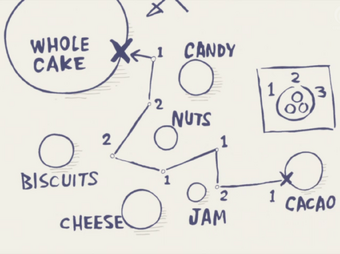 WHOLE
CAKE
1
CANDY
2
NUTS
1
2
3
2
1
BISCUITS
1
2
1
CHEESE
JAM
CACAO